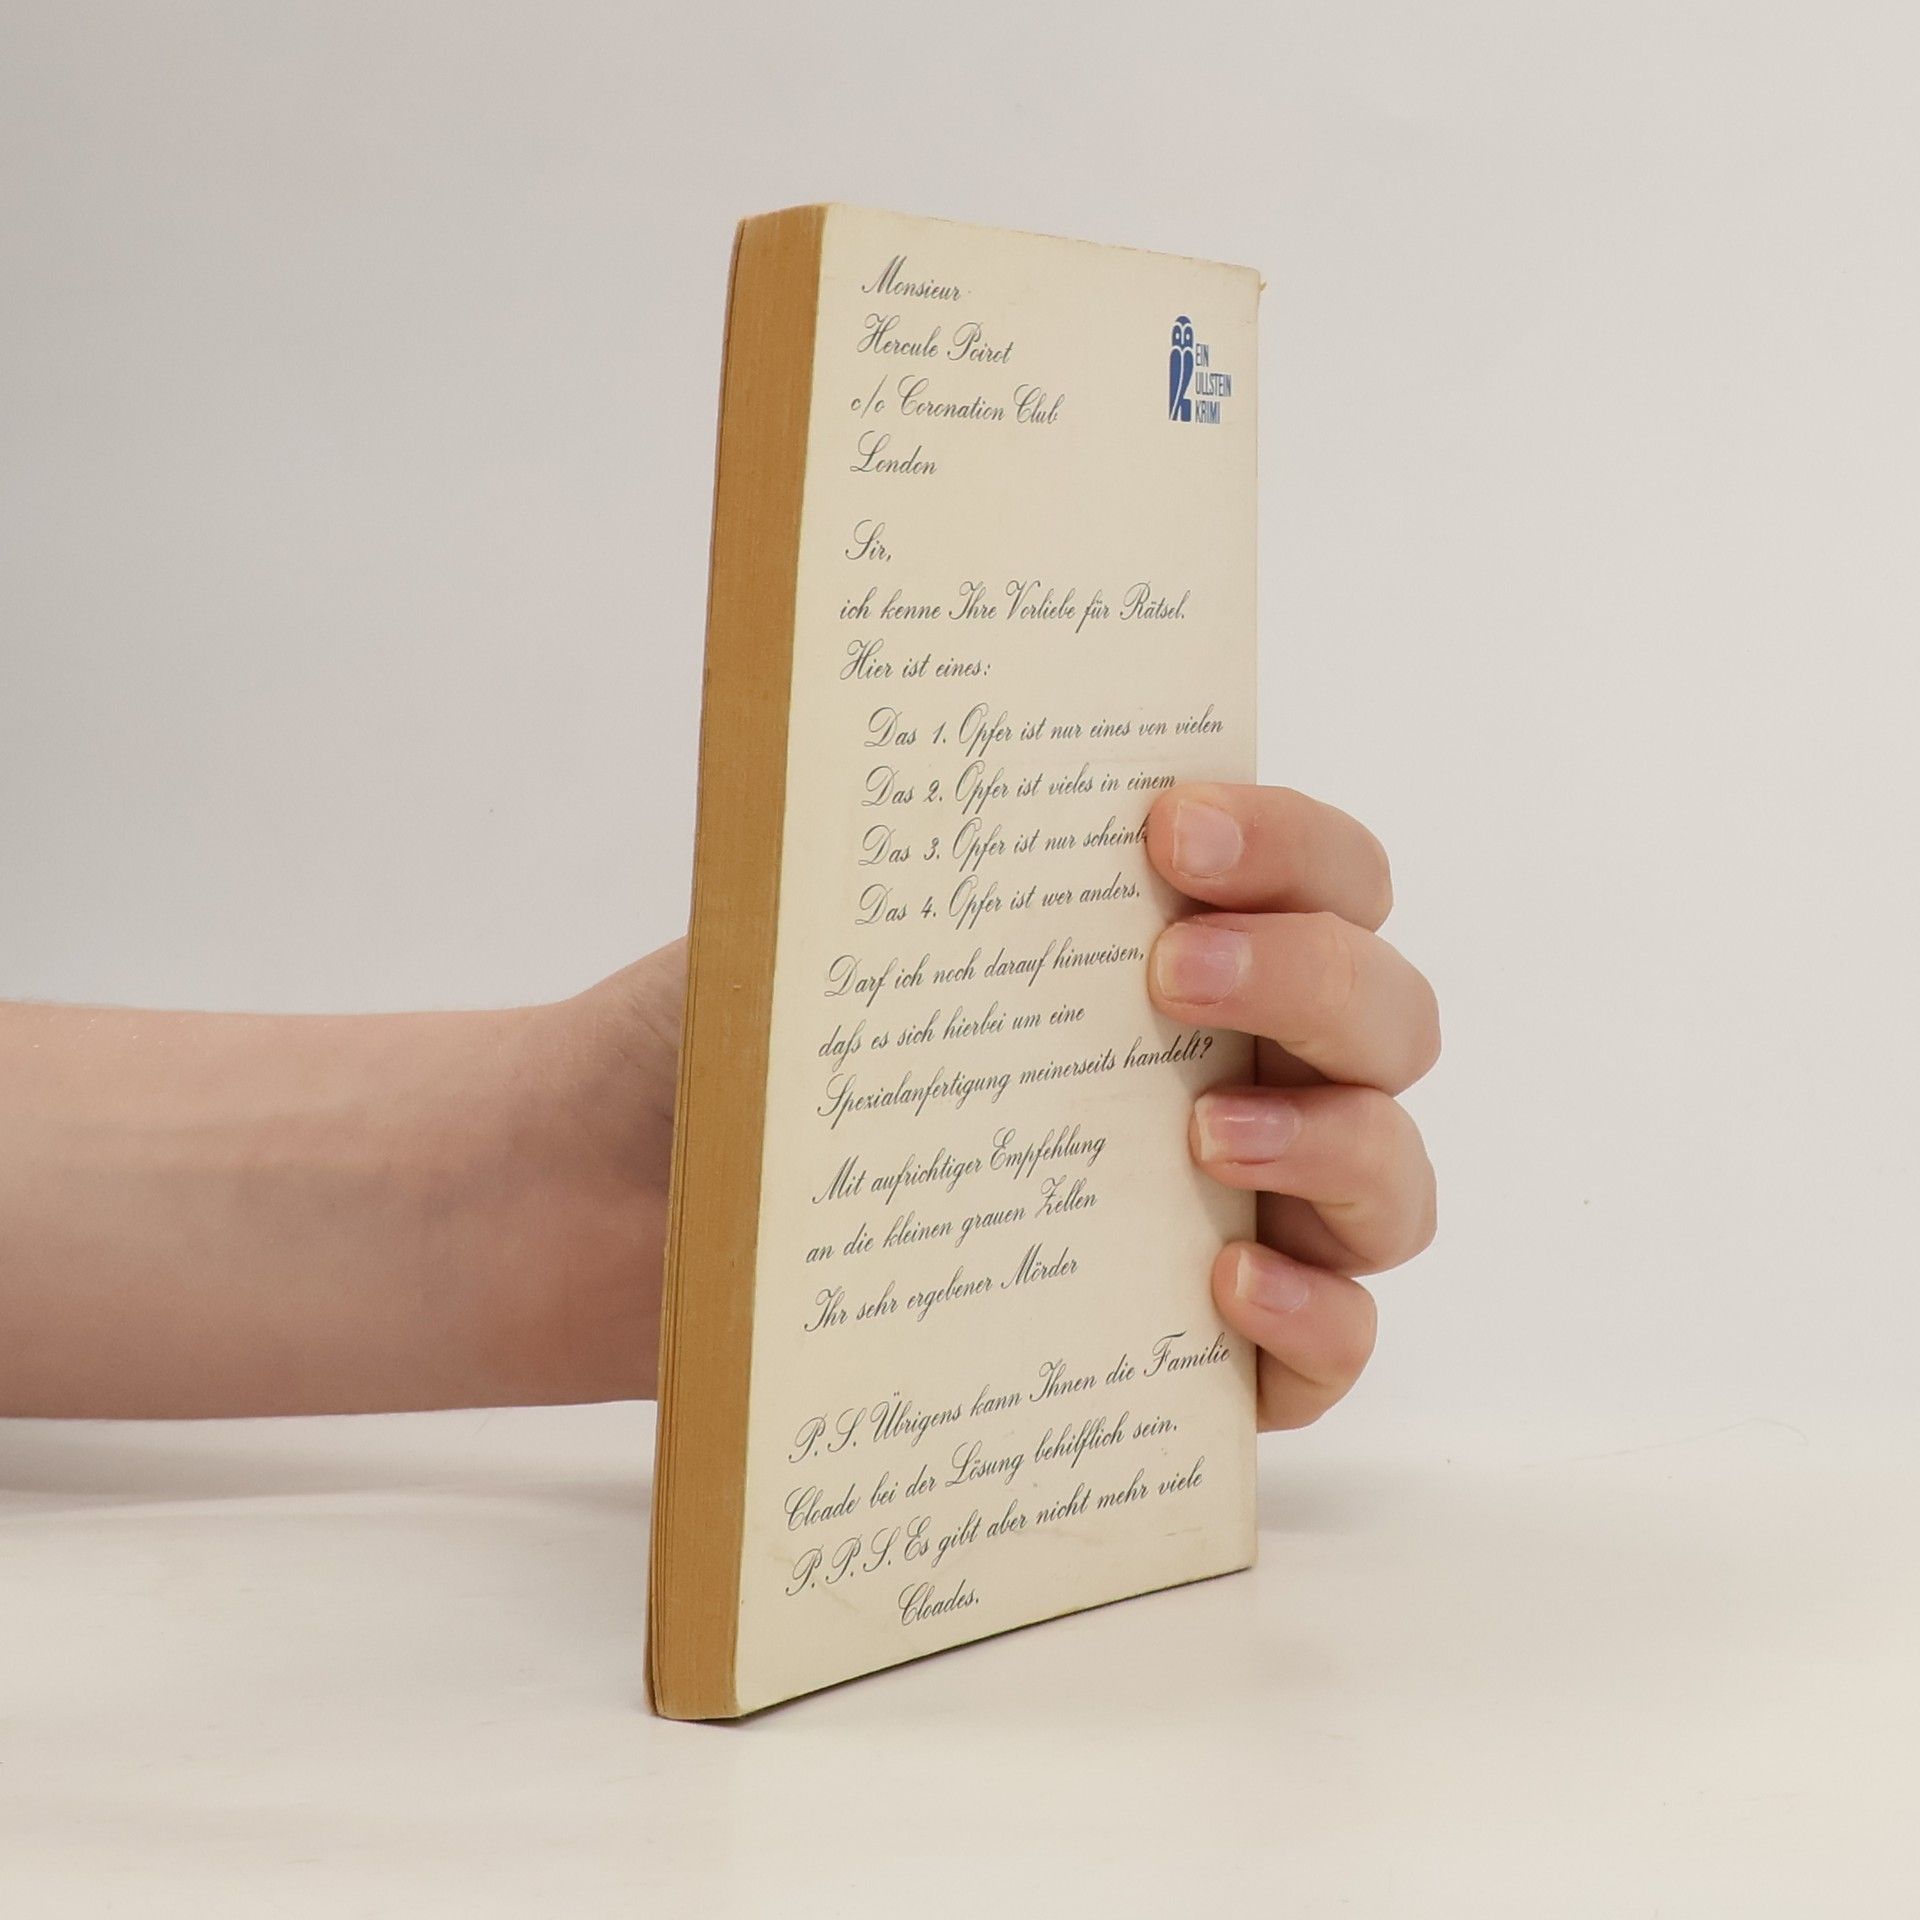 Monsieur
Hercule Poirot
c/o Coronation Club
London
EIN
ULLSTEIN
KRIMI
Sir,
ich kenne Ihre Vorliebe für Rätsel.
Hier ist eines:
Das 1. Opfer ist nur eines von vielen
Das 2. Opfer ist vieles in einem
Das 3. Opfer ist nur
Das 4. Opfer ist wer anders.
Darf ich noch darauf hinweisen,
daß es sich hierbei um eine
Spezialanfertigung meinerseits handelt?
Mit aufrichtiger Empfehlung
an die kleinen grauen Zellen
Ihr sehr ergebener Mörder
P. S. Übrigens kann Ihnen die Familie
Cloade bei der Lösung behilflich sein.
P. P. S. Es gibt aber nicht mehr viele
Cloades.